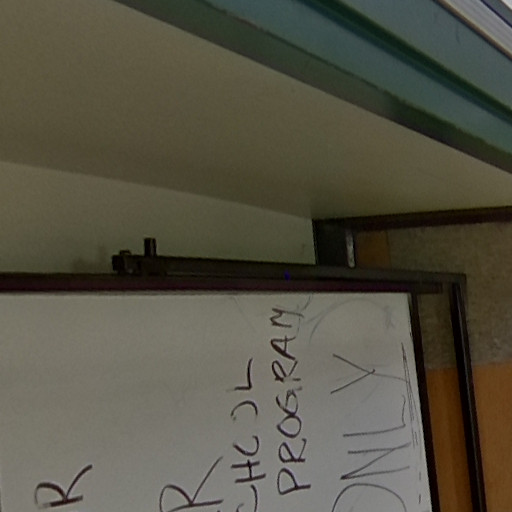 R
R
CHOOL
PROGRAM
ONLY